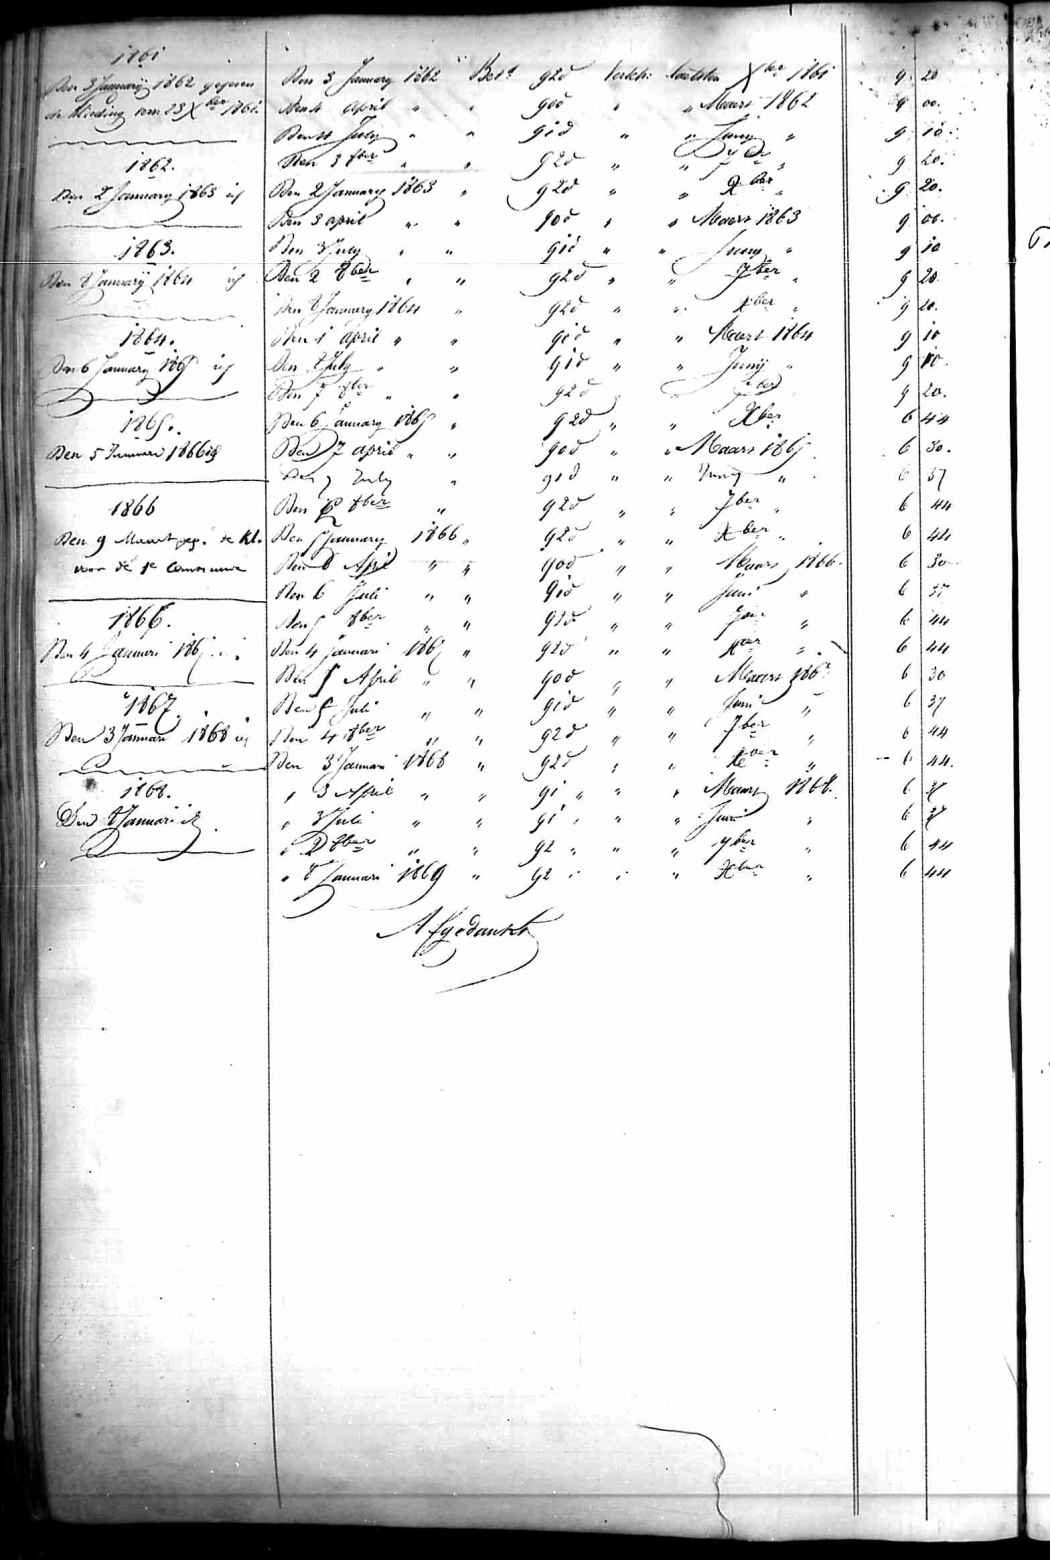 1861
Den 3 January 1862 gegeven
de kleeding van 23 Xber 1861.
1862.
Den 2 January 1863 id
1863.
Den 2 January 1864 id
1864.
Den 6 January 1865 id
1865.
Den 5 Januari 1866 id
1866
Den 9 Maart geg. de kl.
voor de 1e Communie
1866.
Den 4 Januari 1867 id
1867.
Den 3 Januari 1868 id
1868.
Den 2 Januari id
Den 3 January 1862 Bet 92d Verkl: laatsten Xber 1861 9 20
Den 4 april " " 90d " " Maars 1862 9 00.
Den 4 July " " 91d " " Juny " 9 10.
Den 3 8ber " " 92d " " 7ber " 9 20.
Den 2 January 1863 " 92d " " Xber " 9 20.
Den 3 april " " 90d " " Maars 1863 9 00.
Den 3 July " " 91d " " Juny " 9 10
Den 2 8ber " " 92d " " 7ber " 9 20.
Den 2 January 1864 " 92d " " Xber " 9 20.
Den 1 april " " 91d " " Maars 1864 9 10
Den July " " 91d " " Junij " 9 10.
Den 7 8ber " " 92d " " 7ber 9 20.
Den 6 January 1865 " 92d " " Xber 6 44
Den 7 april " " 90d " " Maars 1865 6 30.
Den 7 July " 91d " " Juny " 6 37
Den 8ber " 92d " " 7ber " 6 44
Den 5 January 1866 " 92d " " Xber " 6 44
Den 6 April " " 90d " " Maars 1866. 6 30
Den 6 Juli " " 91d " " Juni " 6 37
Den 5 8ber " " 92d " " 7ber " 6 44
Den 4 Januari 1867 " 92d " " Xber " 6 44
Den 5 April " " 90d " " Maars 1867 6 30
Den 5 Juli " " 91d " " Juni " 6 37
Den 4 8ber " " 92d " " 7ber " 6 44
Den 3 Januari 1868 " 92d " " Xber " 6 44.
" 3 April " " 91 " " " Maars 1868. 6 37
" 3 Juli " " 91 " " " Juni " 6 37
" 2 8ber " " 92 " " " 7ber " 6 44
" Januari 1869 " 92 " " " Xber " 6 44
Afgedankt